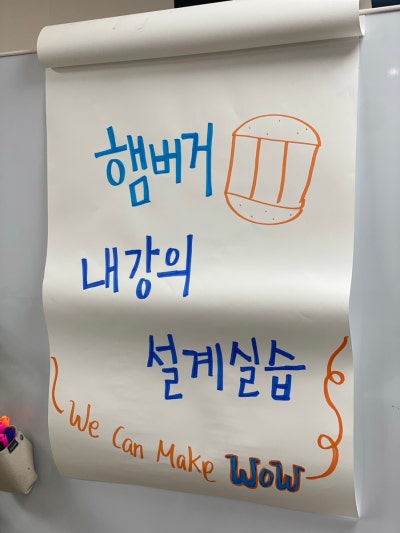 햄버거
내강의
설계실습
We Can Make WOW